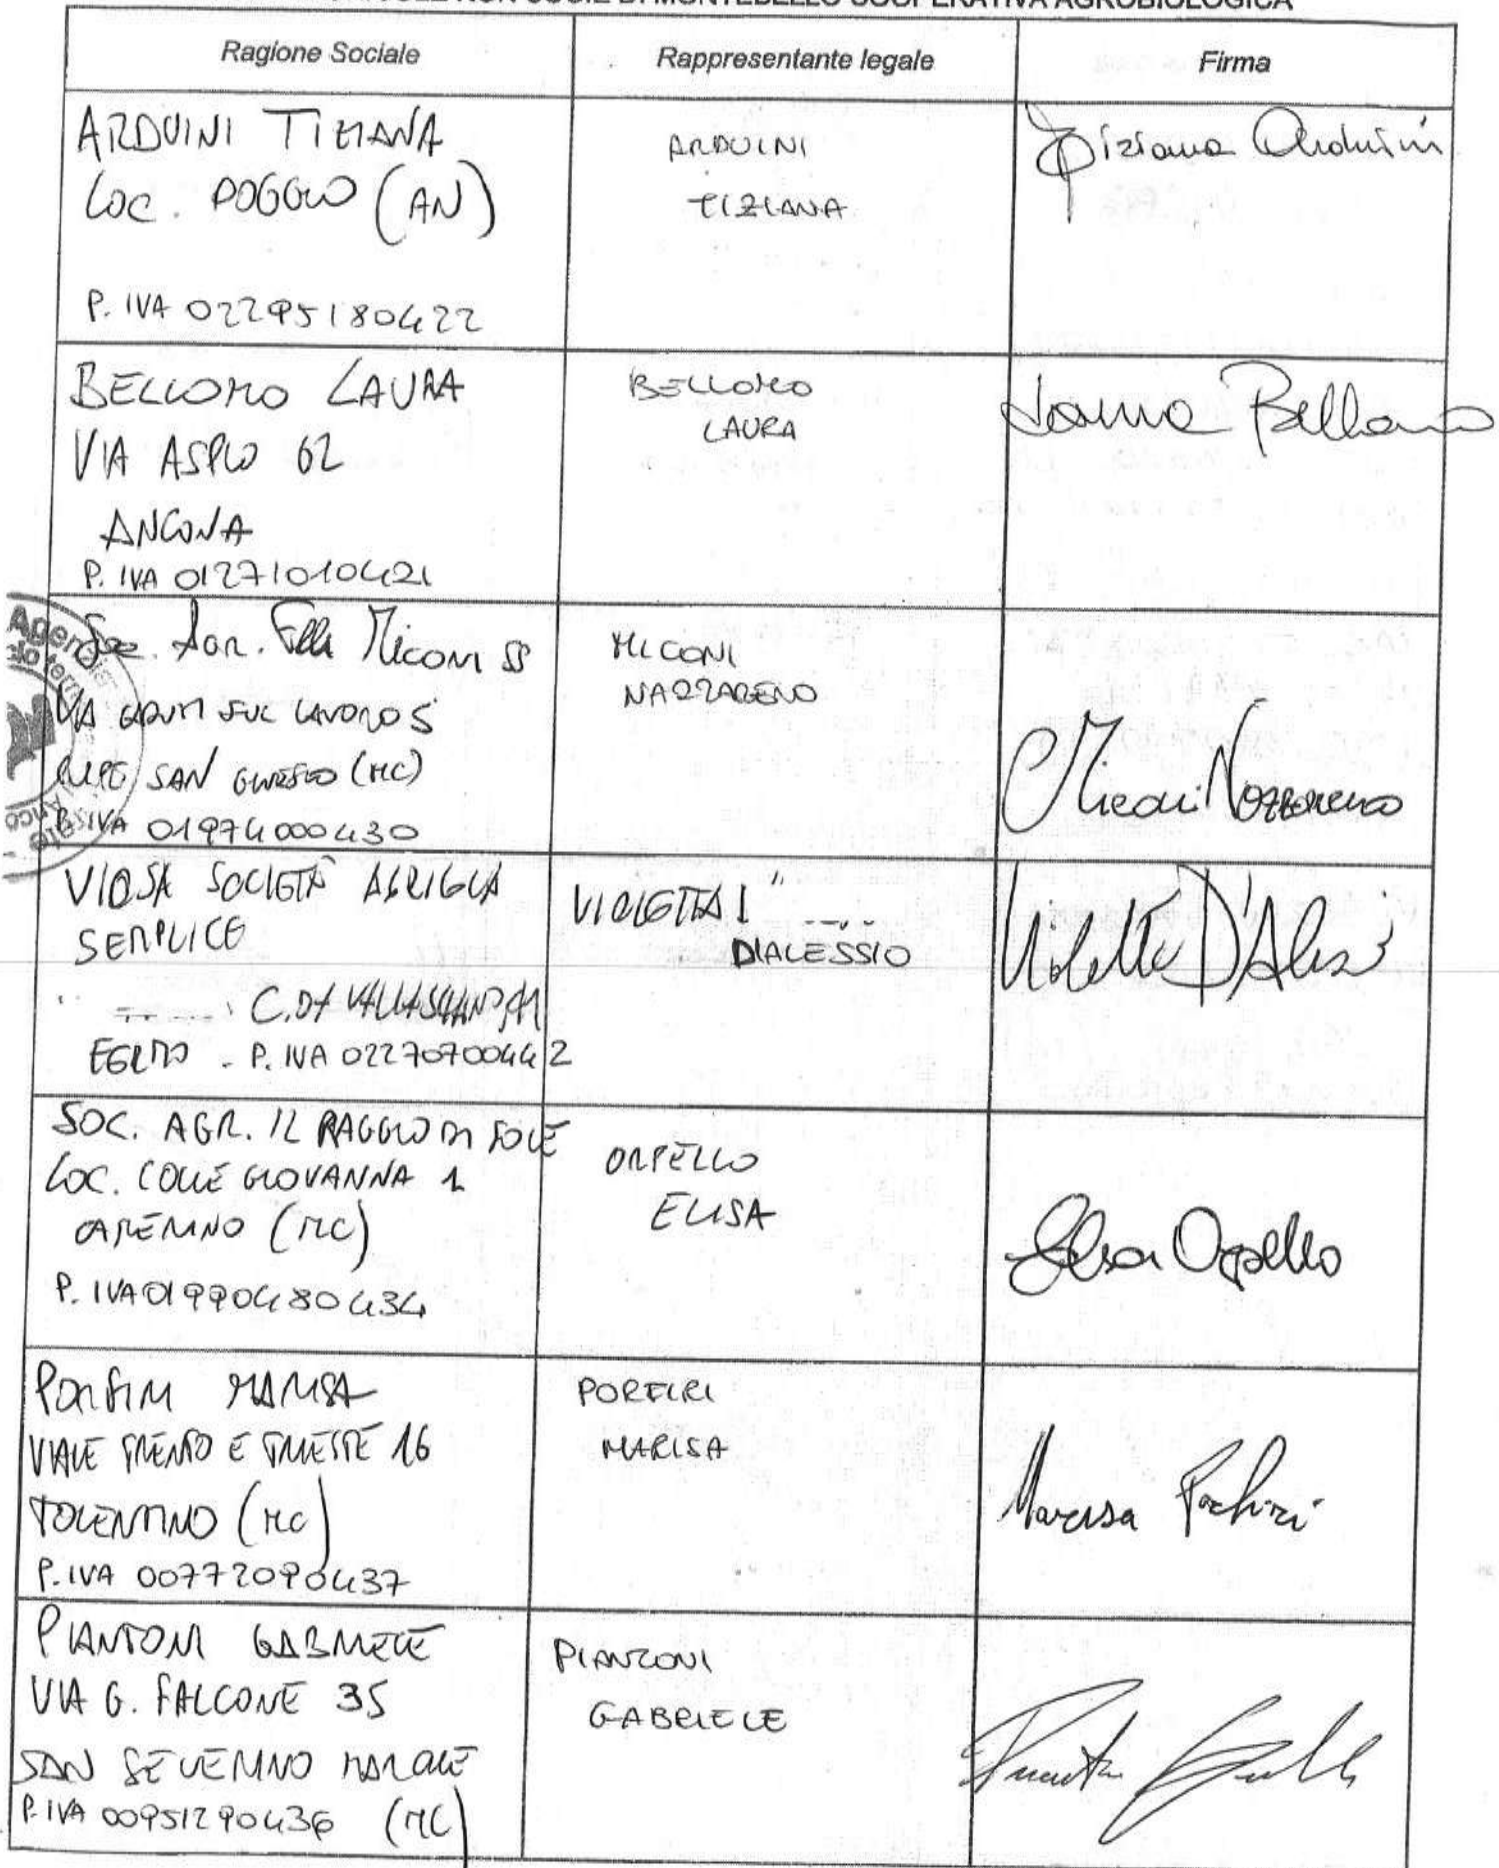 NON SOCIE DI MONTEBELLO COOPERATIVA AGROBIOLOGICA
Ragione Sociale Rappresentante legale Firma
ARDUINI TIZIANA
LOC. POGGIO (AN)
P. IVA 02295180422
ARDUINI
TIZIANA
Tiziana Arduini
BELLOMO LAURA
VIA ASPIO 62
ANCONA
P. IVA 01271010421
BELLOMO
LAURA
Laura Bellomo
Soc. Agr. F.lli Miconi SS
VIA CADUTI SUL LAVORO 5
RIPE SAN GINESIO (MC)
P. IVA 01974000430
MICONI
NAZZARENO
Miconi Nazzareno
Agenzia
VIOSA SOCIETÀ AGRICOLA
SEMPLICE
C.DA
P. IVA 02270700442
VIOLETTA
D'ALESSIO
Violetta D'Alessio
SOC. AGR. IL RAGGIO DI SOLE
LOC. COLLE GIOVANNA 1
(MC)
P. IVA 01990480434
ORPELLO
ELISA
Elisa Orpello
PORFIRI MARISA
VIALE TRENTO E TRIESTE 16
TOLENTINO (MC)
P. IVA 00772090437
PORFIRI
MARISA
Marisa Porfiri
PIANTONI GABRIELE
VIA G. FALCONE 35
SAN SEVERINO MARCHE
P. IVA 00951290436 (MC)
PIANTONI
GABRIELE